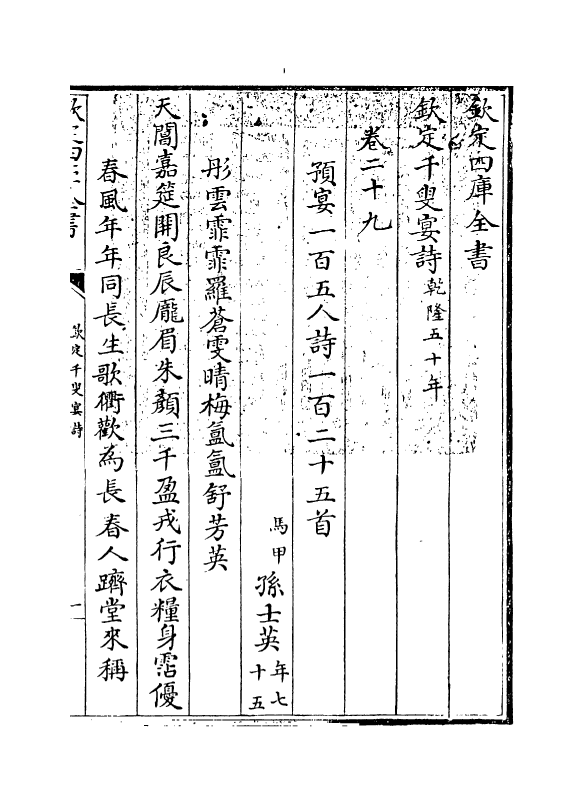 欽定四庫全書
欽定千叟宴詩乾隆五十年
卷二十九
預宴一百五人詩一百二十五首
馬甲孫士英年七十五
彤雲霏霏羅蒼雯晴梅氲氲舒芳英
天閶嘉筵開良辰龐眉朱顏三千盈戎行衣糧身霑優
春風年年同長生歌衢歡為長春人躋堂來稱
欽定四庫全書
欽定千叟宴詩
一